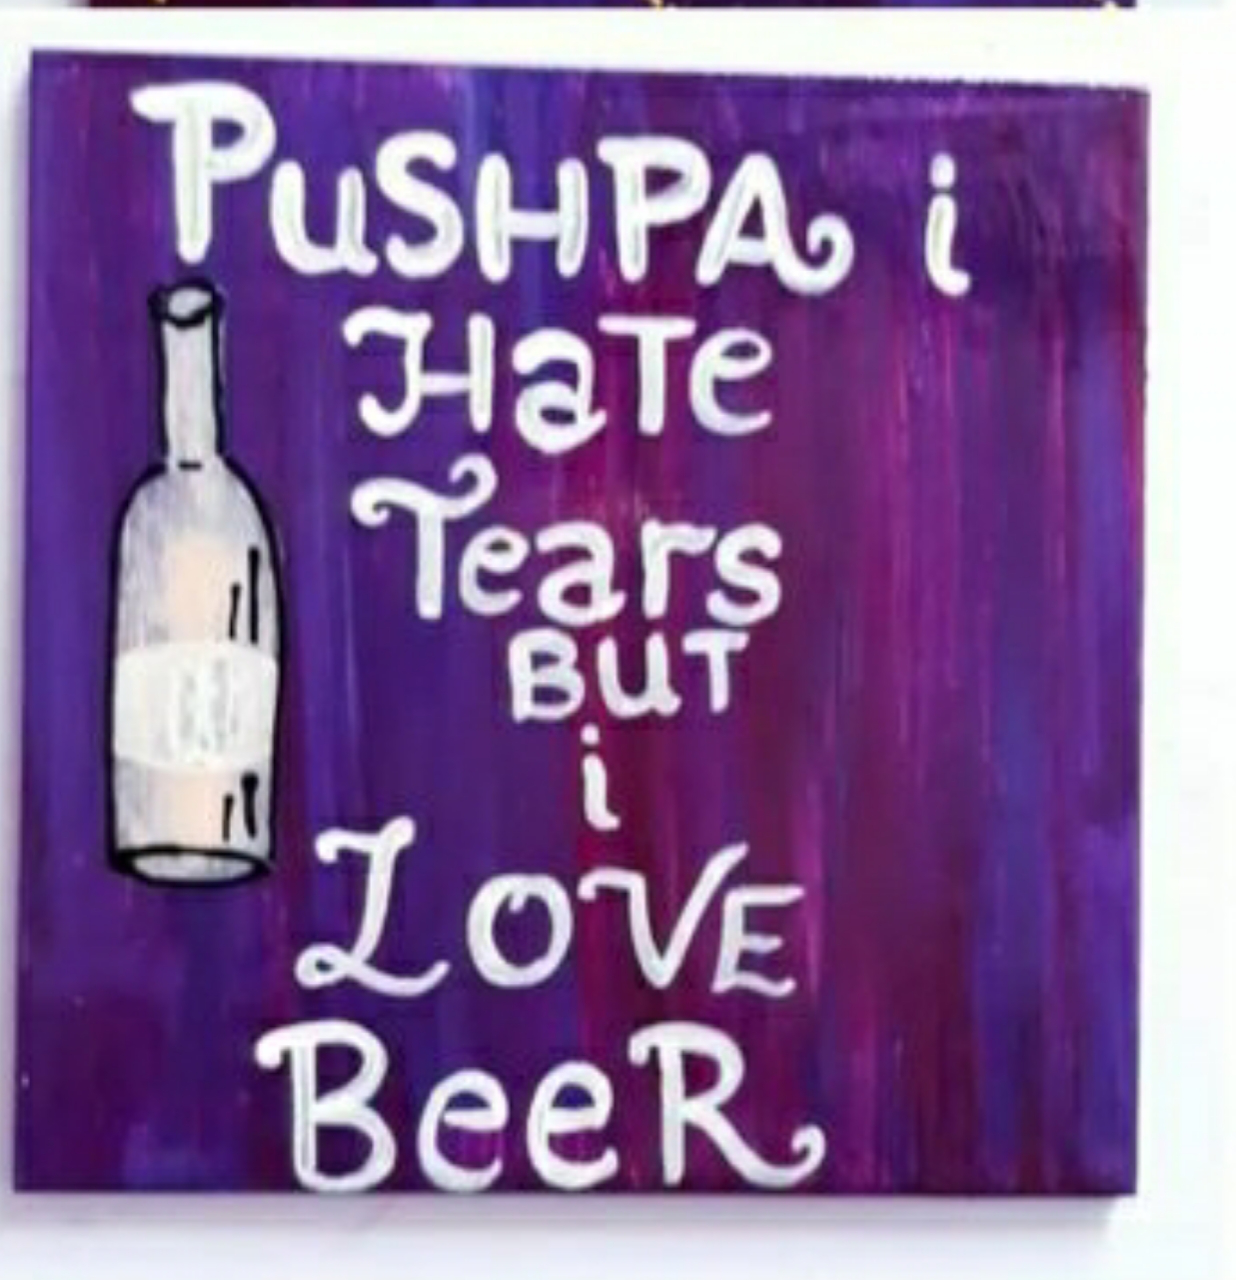 PuSHPA i
HaTe
Tears
BUT
i
LOVE
BeeR